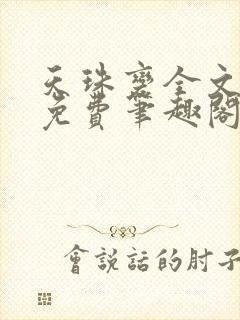 天珠變全文
免費筆趣閣
會說話的肘子